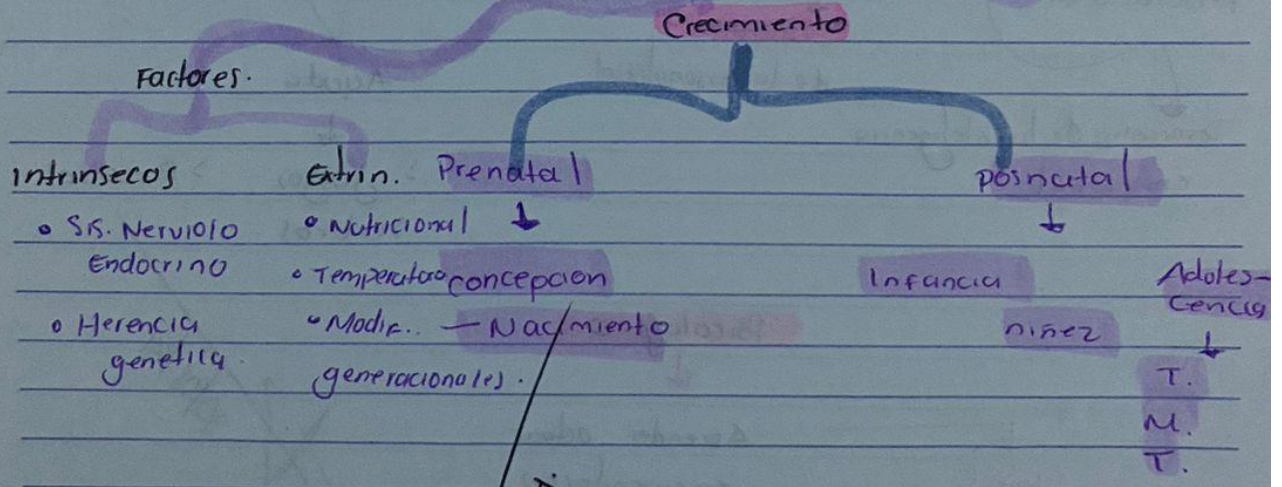 Crecimiento
Factores.
Intrinsecos
• Sis. Nervioso
Endocrino
• Herencia
genetica.
Extrin.
• Nutricional
• Temperatura
• Modif..
generacionales.
Prenatal
↓
concepcion
— Nacimiento
Posnatal
↓
Infancia
niñez
Adoles-
cencia
↓
T.
M.
T.